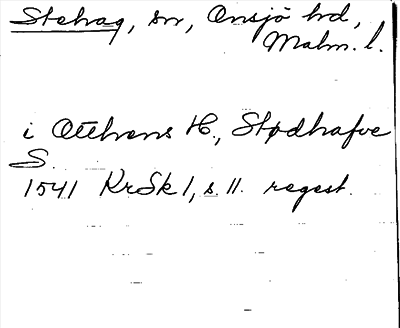 Stehag, sn, Onsjö hd,
Malm. l.
i Otthens H., Stødhafve
S.
1541 KrSk 1, s. 11. regest.